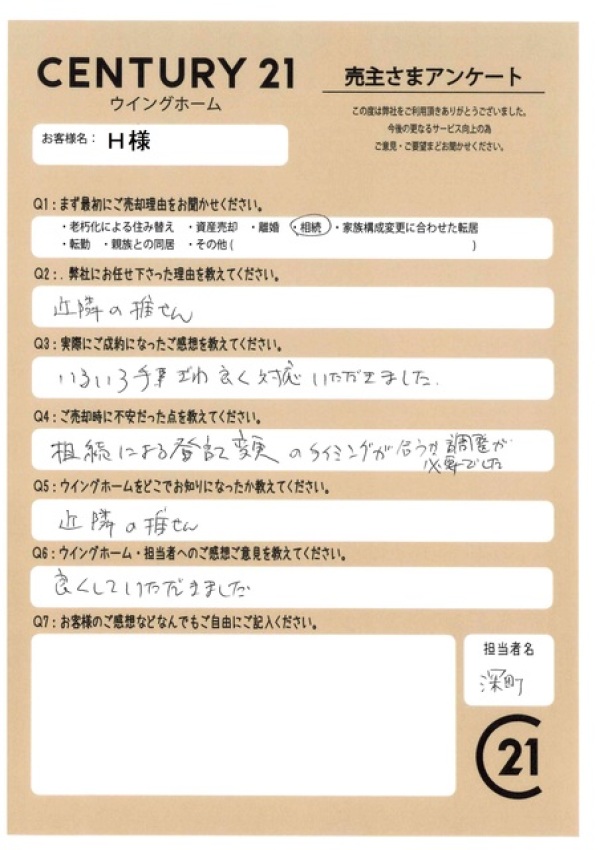 CENTURY 21
ウイングホーム
売主さまアンケート
この度は弊社をご利用頂きありがとうございました。
今後の更なるサービス向上の為
ご意見・ご要望まどお聞かせください。
お客様名： H様
Q1：まず最初にご売却理由をお聞かせください。
・老朽化による住み替え ・資産売却 ・離婚 ・相続 ・家族構成変更に合わせた転居
・転勤 ・親族との同居 ・その他( )
Q2：. 弊社にお任せ下さった理由を教えてください。
近隣の推せん
Q3：実際にご成約になったご感想を教えてください。
いろいろ手早く良く対応いただきました.
Q4：ご売却時に不安だった点を教えてください。
相続による登記変更のタイミングが合うか調整が
必要でした
Q5：ウイングホームをどこでお知りになったか教えてください。
近隣の推せん
Q6：ウイングホーム・担当者へのご感想ご意見を教えてください。
良くしていただきました
Q7：お客様のご感想などなんでもご自由にご記入ください。
担当者名
深町
C21